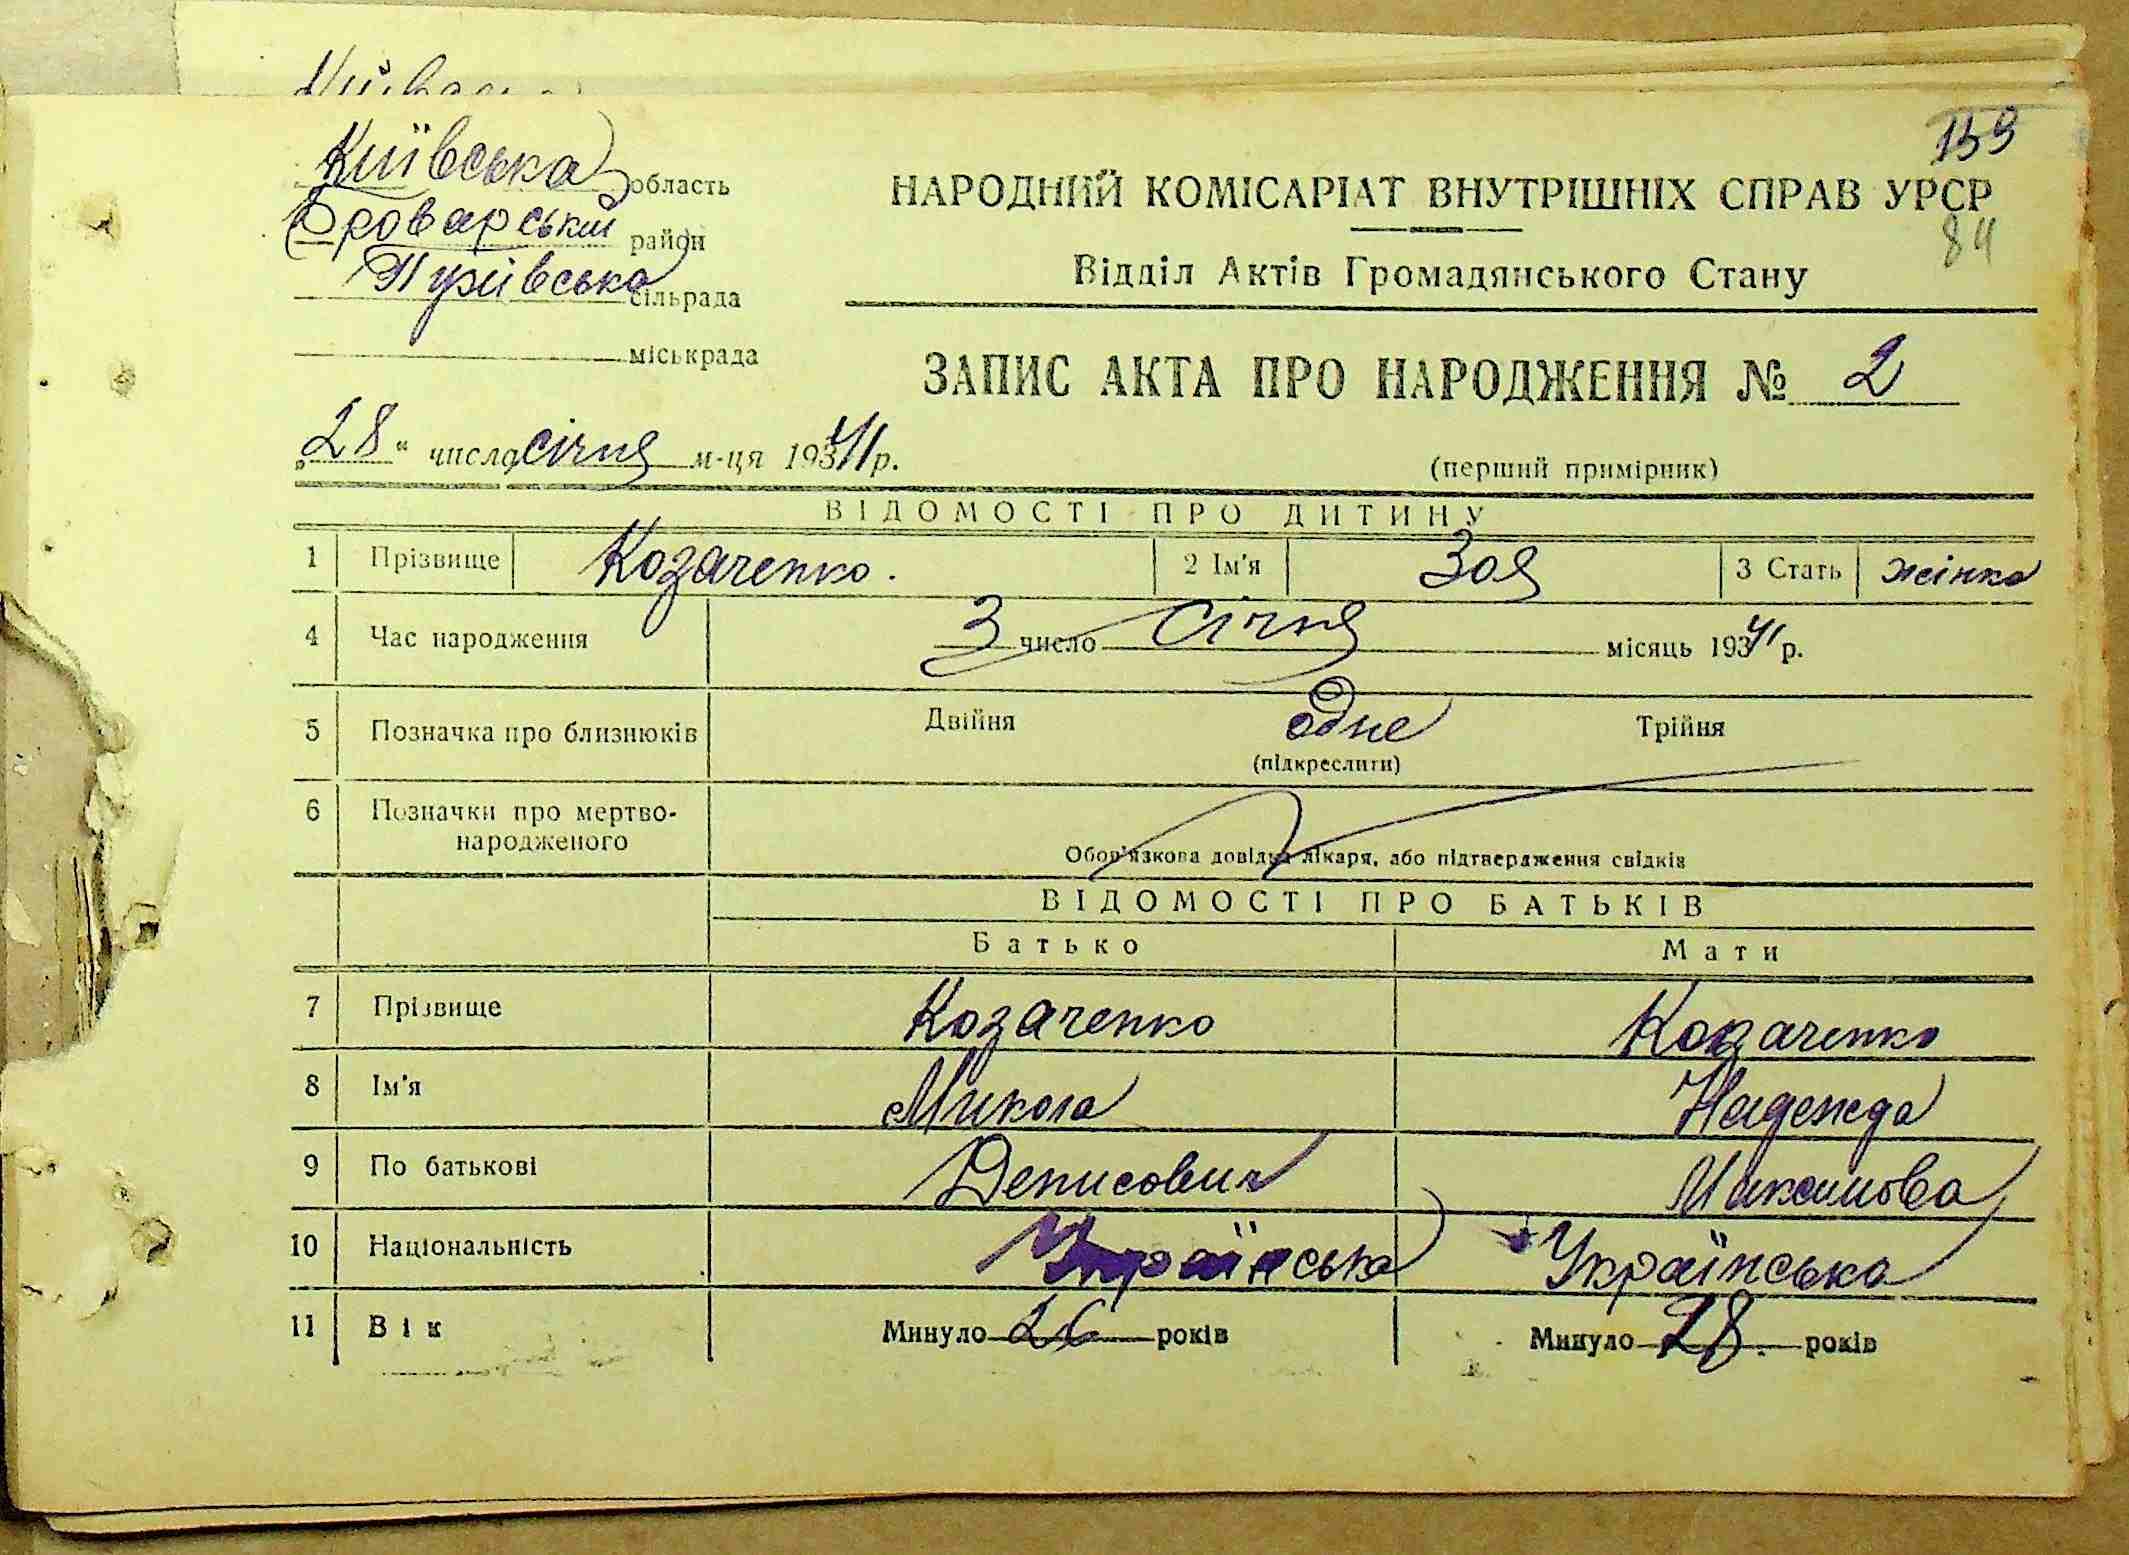 Київська область
Броварський район
Пухівська сільрада
міськрада
159
НАРОДНИЙ КОМІСАРІАТ ВНУТРІШНІХ СПРАВ УРСР
84
Відділ Актів Громадянського Стану
ЗАПИС АКТА ПРО НАРОДЖЕННЯ № 2
„28“ числа січня м-ця 1941 р.
(перший примірник)
ВІДОМОСТІ ПРО ДИТИНУ
1 Прізвище Козаченко. 2 Ім'я Зоя 3 Стать жінка
4 Час народження 3 число січня місяць 1941 р.
5 Позначка про близнюків Двійня одне Трійня
(підкреслити)
6 Позначки про мертво-
народженого
Обов'язкова довідка лікаря, або підтвердження свідків
ВІДОМОСТІ ПРО БАТЬКІВ
Батько Мати
7 Прізвище Козаченко Козаченко
8 Ім'я Микола Надежда
9 По батькові Денисович Максимовна
10 Національність Українська Українська
11 Вік Минуло 26 років Минуло 28. років